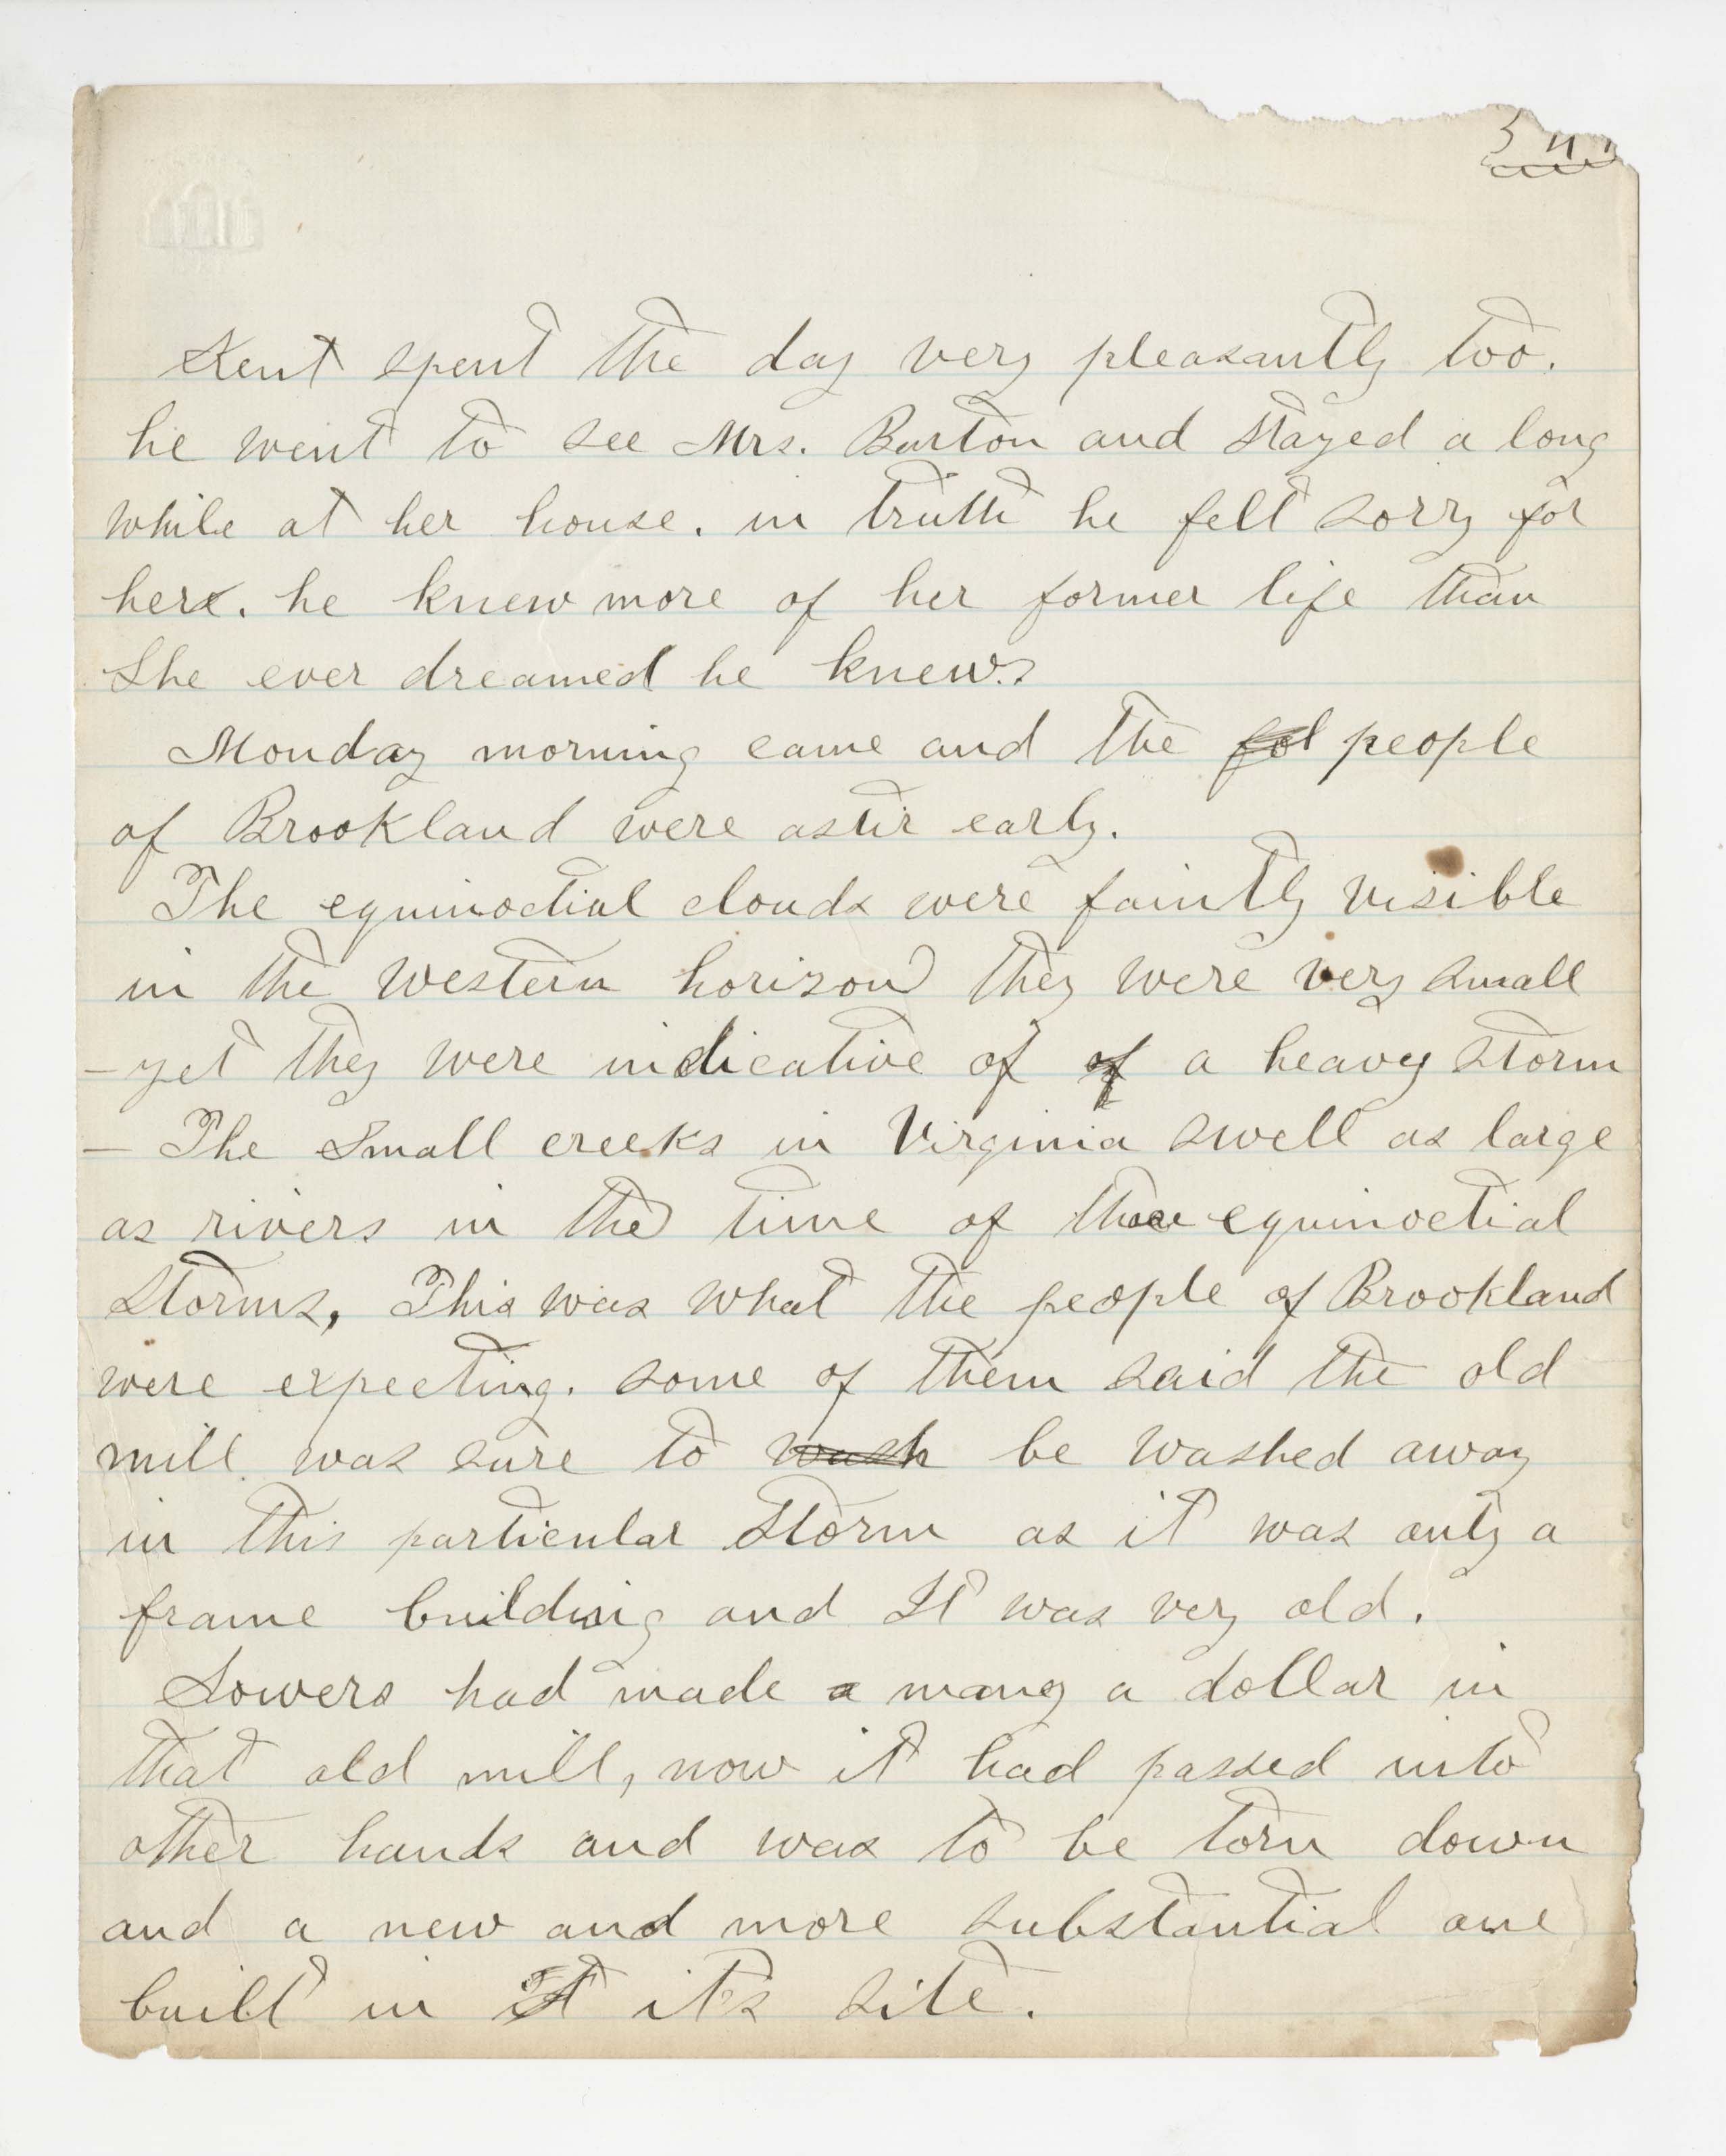 Kent spent the day very pleasantly too.
he went to see Mrs. Burton and stayed a long
while at her house. in truth he felt sorry for
her. he knew more of her former life than
She ever dreamed he knew.
Monday morning came and the fol people
of Brookland were astir early.
The equinoctial clouds were faintly visible
in the western horizon they were very small
– yet they were indicative of of a heavy storm
– The Small creeks in Virginia swell as large
as rivers in the time of these equinoctial
storms, This was what the people of Brookland
were expecting. some of them said the old
mill was sure to wash be washed away
in this particular storm as it was only a
frame building and It was very old.
Sowers had made a many a dollar in
that old mill, now it had passed into
other hands and was to be torn down
and a new and more substantial one
built in it it's site.